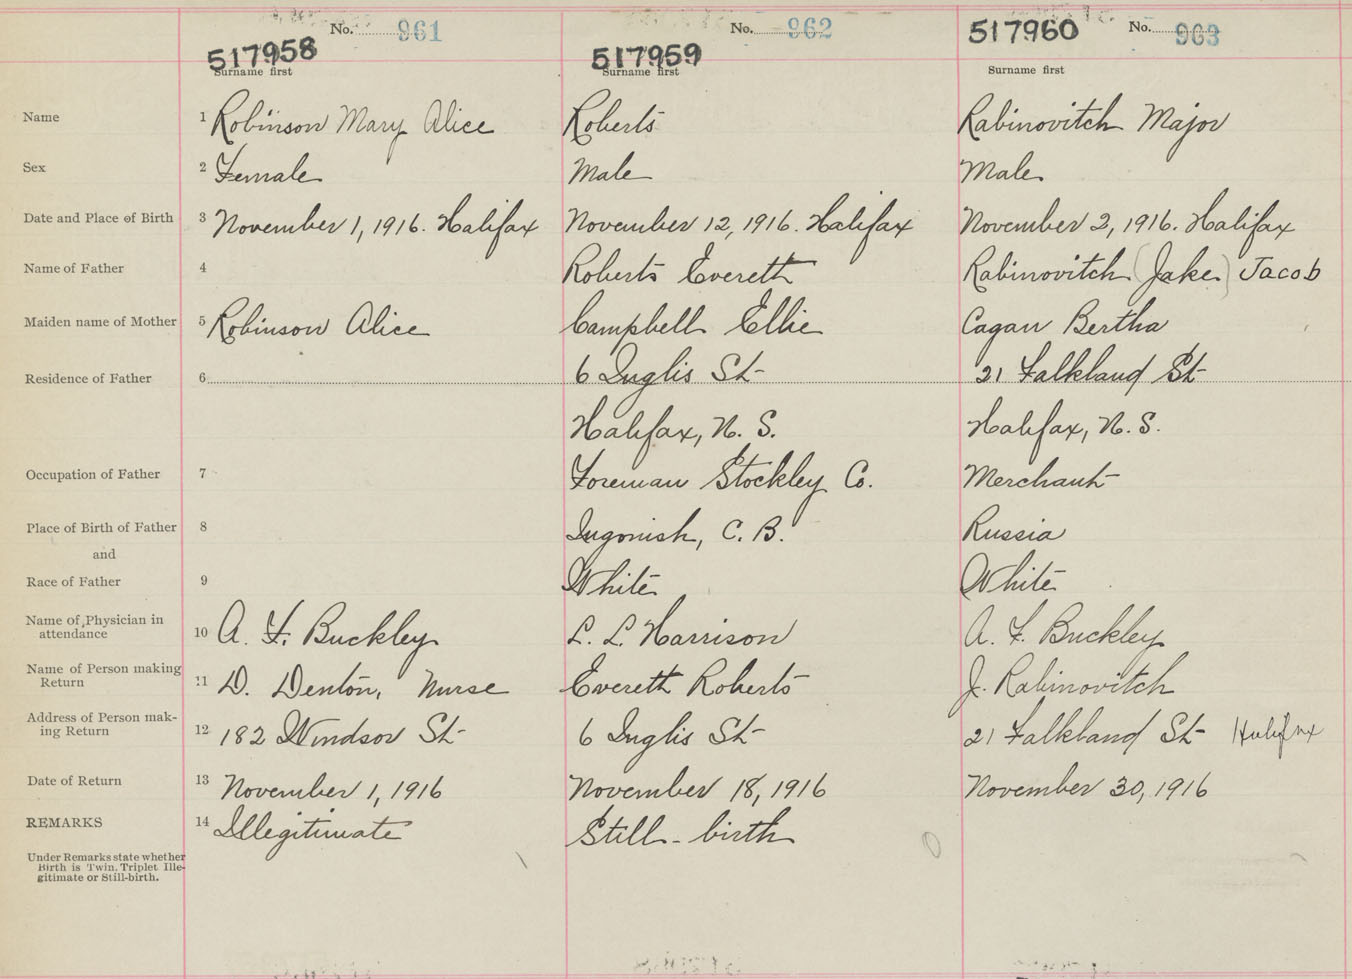 No. 961 No. 962 No. 963
517958 517959 517960
Surname first Surname first Surname first
Name 1 Robinson Mary Alice Roberts Rabinovitch Major
Sex 2 Female Male Male
Date and Place of Birth 3 November 1, 1916. Halifax November 12, 1916. Halifax November 2, 1916. Halifax
Name of Father 4 Roberts Evereth Rabinovitch (Jake) Jacob
Maiden name of Mother 5 Robinson Alice Campbell Ellie Cagan Bertha
Residence of Father 6 6 Inglis St 21 Falkland St
Halifax, N. S. Halifax, N. S.
Occupation of Father 7 Foreman Stockley Co. Merchant
Place of Birth of Father 8 Ingonish, C. B. Russia
and
Race of Father 9 White White
Name of Physician in
attendance 10 A. F. Buckley L. L. Harrison A. F. Buckley
Name of Person making
Return 11 D. Denton, Nurse Evereth Roberts J. Rabinovitch
Address of Person mak-
ing Return 12 182 Windsor St 6 Inglis St 21 Falkland St Halifax
Date of Return 13 November 1, 1916 November 18, 1916 November 30, 1916
REMARKS 14 Illegitimate Still-birth
Under Remarks state whether
Birth is Twin, Triplet Ille-
gitimate or Still-birth.